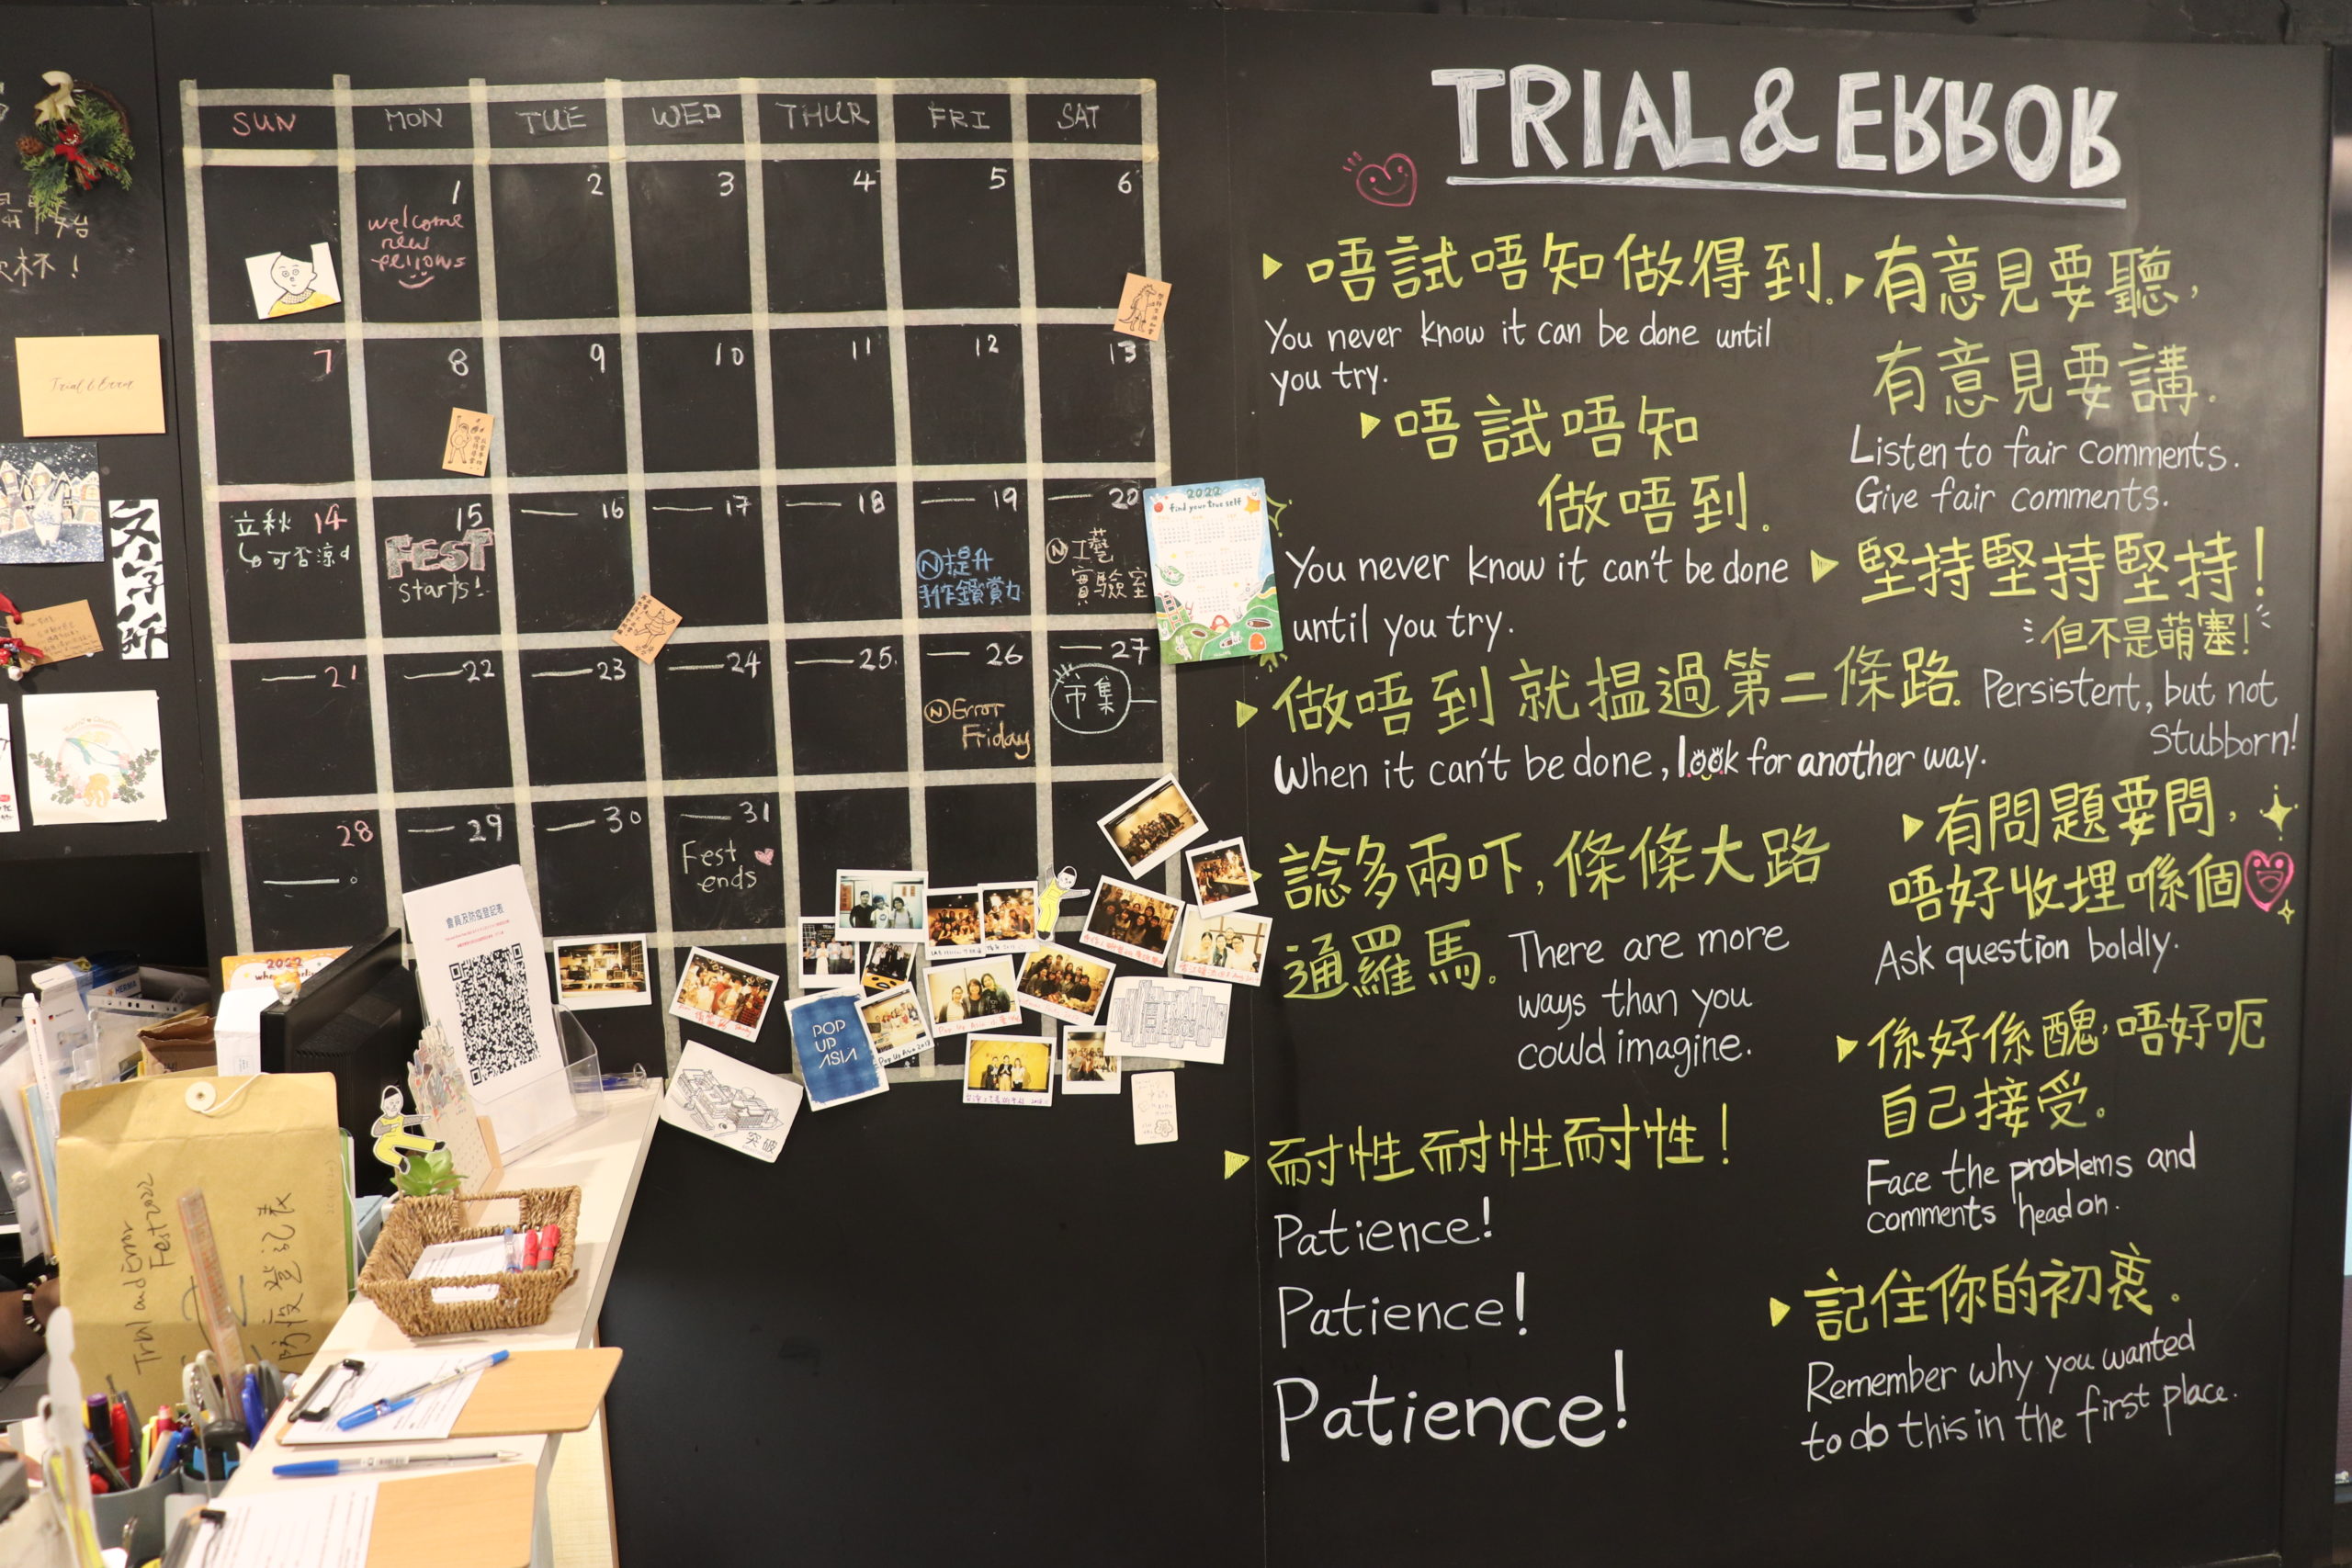 SUN MON TUE WED THUR FRI SAT
1 2 3 4 5 6
welcome
new
fellows
7 8 9 10 11 12 13
立秋 14 15 16 17 18 19 20
可否涼d
FEST
starts!
N提升
手作鑽賞力
N 工藝
實驗室
21 22 23 24 25 26 27
N Error
Friday
市集
28 29 30 31
Fest
ends
TRIAL & ERROR
唔試唔知做得到.
You never know it can be done until
you try.
唔試唔知
做唔到.
You never know it can't be done
until you try.
做唔到就搵過第二條路.
When it can't be done, look for another way.
諗多兩吓,條條大路
通羅馬。
There are more
ways than you
could imagine.
耐性耐性耐性!
Patience!
Patience!
Patience!
有意見要聽,
有意見要講.
Listen to fair comments.
Give fair comments.
堅持堅持堅持!
但不是萌塞!
Persistent, but not
Stubborn!
有問題要問,
唔好收埋喺個
Ask question boldly.
係好係醜,唔好呃
自己接受。
Face the problems and
comments head on.
記住你的初衷.
Remember why you wanted
to do this in the first place.
2022
find your true self
Trial & Error
文字所
會員及防疫登記表
2022
POP
UP
ASIA
Pop Up Asia 2018
突破
Trial and Error
Fest 2022
防疫登記表